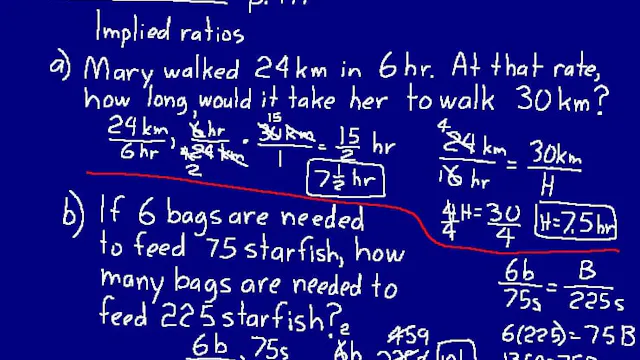 Implied ratios
a) Mary walked 24 km in 6 hr. At that rate,
how long would it take her to walk 30 km?
24 km / 6 hr, 6 hr / 24 km · 30 km / 1 = 15/2 hr
7 1/2 hr
24 km / 6 hr = 30 km / H
4H/4 = 30/4 H = 7.5 hr
b) If 6 bags are needed
to feed 75 starfish, how
many bags are needed to
feed 225 starfish?
6b / 75s = B / 225s
6(225) = 75B
6b 75s